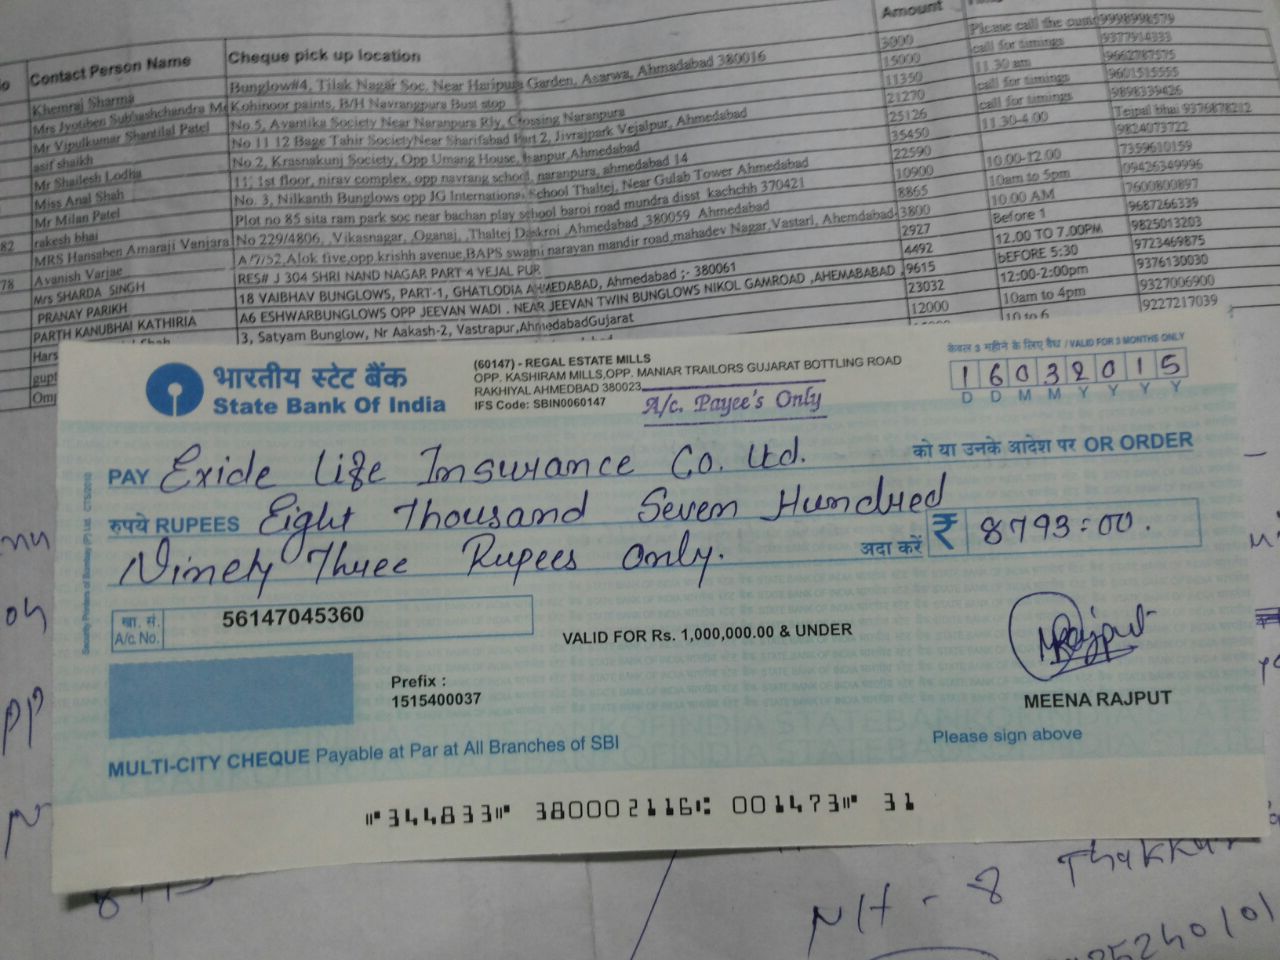 Contact Person Name Cheque pick up location Amount
Khemraj Sharma Bunglow#4, Tilak Nagar Soc, Near Haripura Garden, Asarwa, Ahmadabad 380016 3000 Please call the 9998998579
Mrs Jyotiben Subhashchandra Kohinoor paints, B/H Navrangpura Bust stop 15000 call for timings 9377914333
Mr Vipulkumar Shantilal Patel No 5, Avantika Society Near Naranpura Rly, Crossing Naranpura 11350 11 30 am 9662787575
asif shaikh No 11 12 Bage Tahir SocietyNear Sharifabad Part 2, Jivrajpark Vejalpur, Ahmedabad 21270 call for timings 9601515555
Mr Shailesh Lodha No 2, Krasnakunj Society, Opp Umang House, Ahmedabad 25126 call for timings 9898339426
Miss Anal Shah 11, 1st floor, nirav complex, opp navrang school, naranpura, ahmedabad 14 35450 11.30-4.00 Tejpal bhai 9376878212
Mr Milan Patel No. 3, Nilkanth Bunglows opp JG International School Thaltej, Near Gulab Tower Ahmedabad 22590 9824073722
82 rakesh bhai Plot no 85 sita ram park soc near bachan play school baroi road mundra disst kachchh 370421 10900 10.00-12.00 7359610159
MRS Hansaben Amaraji Vanjara No 229/4806, ,Vikasnagar, ,Oganaj, ,Thaltej Daskroi ,Ahmedabad ,380059 Ahmedabad 8865 10am to 5pm 09426349996
78 Avanish Varjae A/7/52,Alok five,opp.krishh avenue,BAPS swami narayan mandir road,mahadev Nagar,Vastarl, Ahemdabad 3800 10.00 AM 7600800897
Mrs SHARDA SINGH RES# J 304 SHRI NAND NAGAR PART 4 VEJAL PUR 2927 Before 1 9687266339
PRANAY PARIKH 18 VAIBHAV BUNGLOWS, PART-1, GHATLODIA AHMEDABAD, Ahmedabad ;- 380061 4492 12.00 TO 7.00PM 9825013203
PARTH KANUBHAI KATHIRIA A6 ESHWARBUNGLOWS OPP JEEVAN WADI . NEAR JEEVAN TWIN BUNGLOWS NIKOL GAMROAD ,AHEMABABAD , 9615 bEFORE 5:30 9723469875
3, Satyam Bunglow, Nr Aakash-2, Vastrapur,AhmedabadGujarat 23032 12:00-2:00pm 9376130030
12000 10am to 4pm 9327006900
10 to 6 9227217039
भारतीय स्टेट बैंक
State Bank Of India
(60147) - REGAL ESTATE MILLS
OPP. KASHIRAM MILLS,OPP. MANIAR TRAILORS GUJARAT BOTTLING ROAD
RAKHIYAL AHMEDBAD 380023
IFS Code: SBIN0060147
A/c. Payee's Only
केवल 3 महीने के लिए वैध / VALID FOR 3 MONTHS ONLY
16032015
D D M M Y Y Y Y
PAY Exide Life Insurance Co. Ltd. को या उनके आदेश पर OR ORDER
रुपये RUPEES Eight Thousand Seven Hundred
Ninety Three Rupees Only. अदा करें ₹ 8793=00.
खा. सं.
A/c No. 56147045360
VALID FOR Rs. 1,000,000.00 & UNDER
Prefix :
1515400037
MEENA RAJPUT
Please sign above
MULTI-CITY CHEQUE Payable at Par at All Branches of SBI
⑈344833⑈ 380002116⑆ 001473⑈ 31
N/H - 8 Thakkar